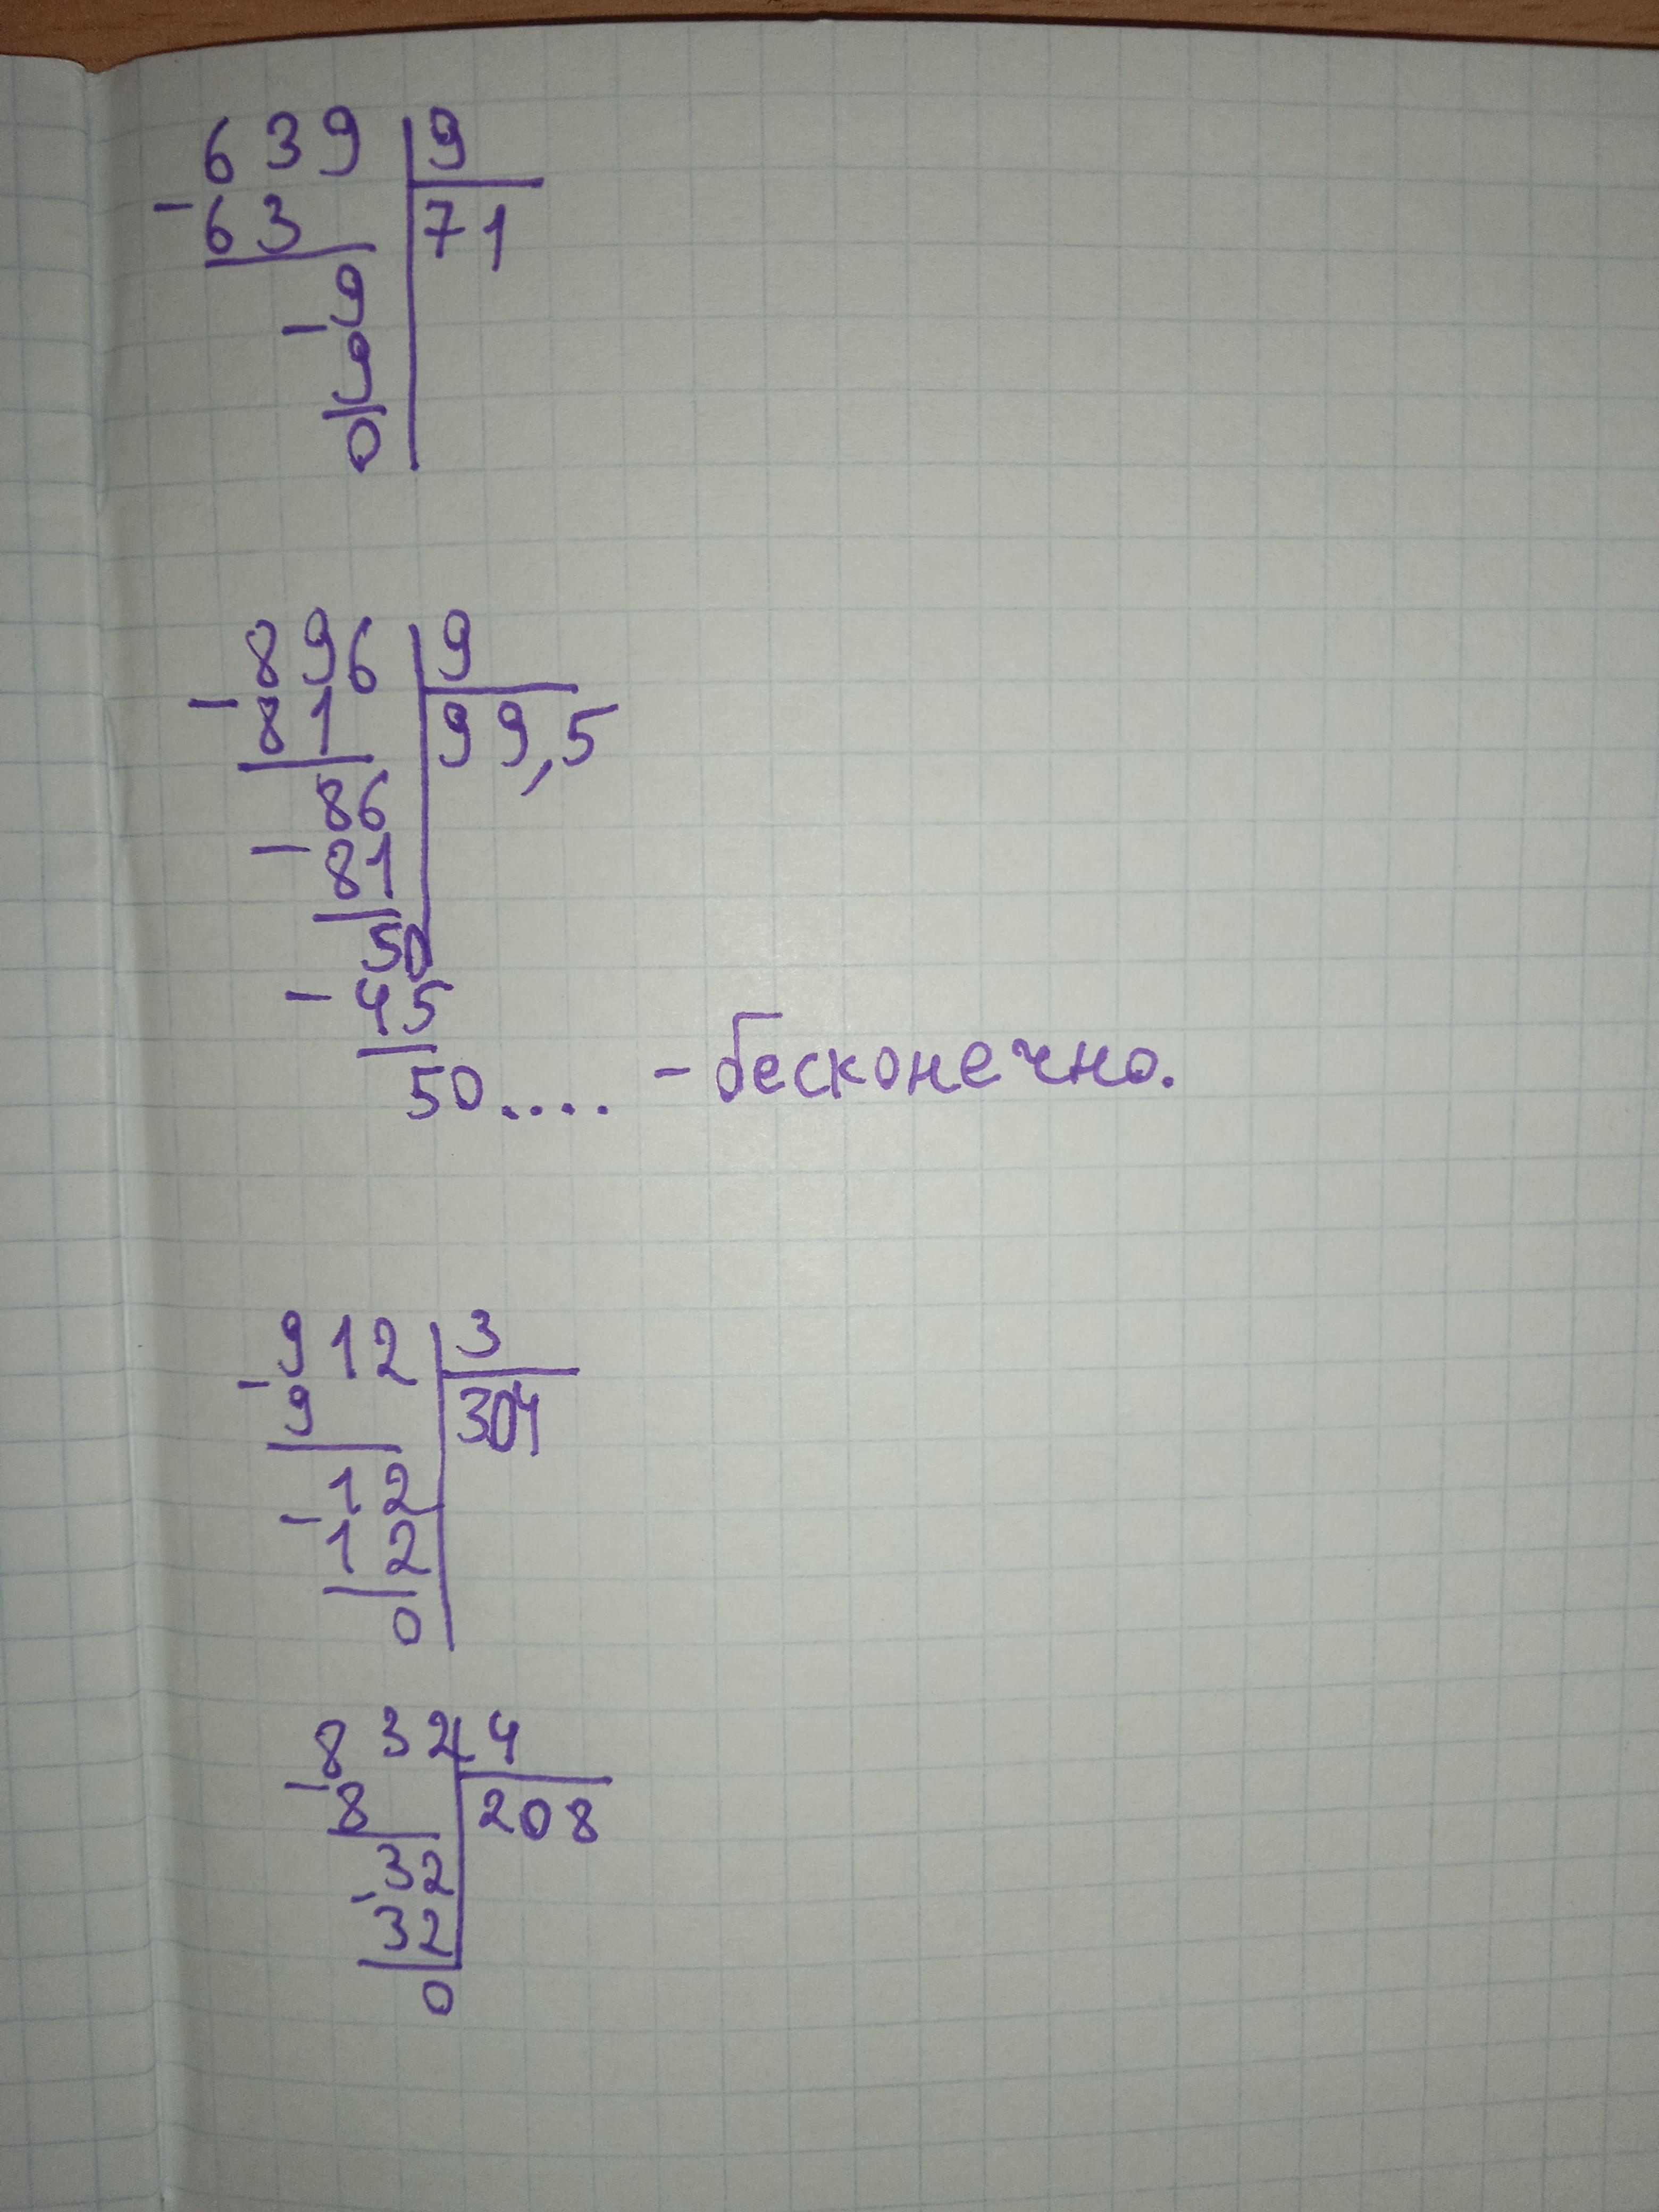 639 9
-63 71
9
-9
0
896 9
-81 99,5
86
-81
50
-45
50.... - бесконечно.
912 3
-9 304
12
-12
0
832 4
-8 208
32
-32
0